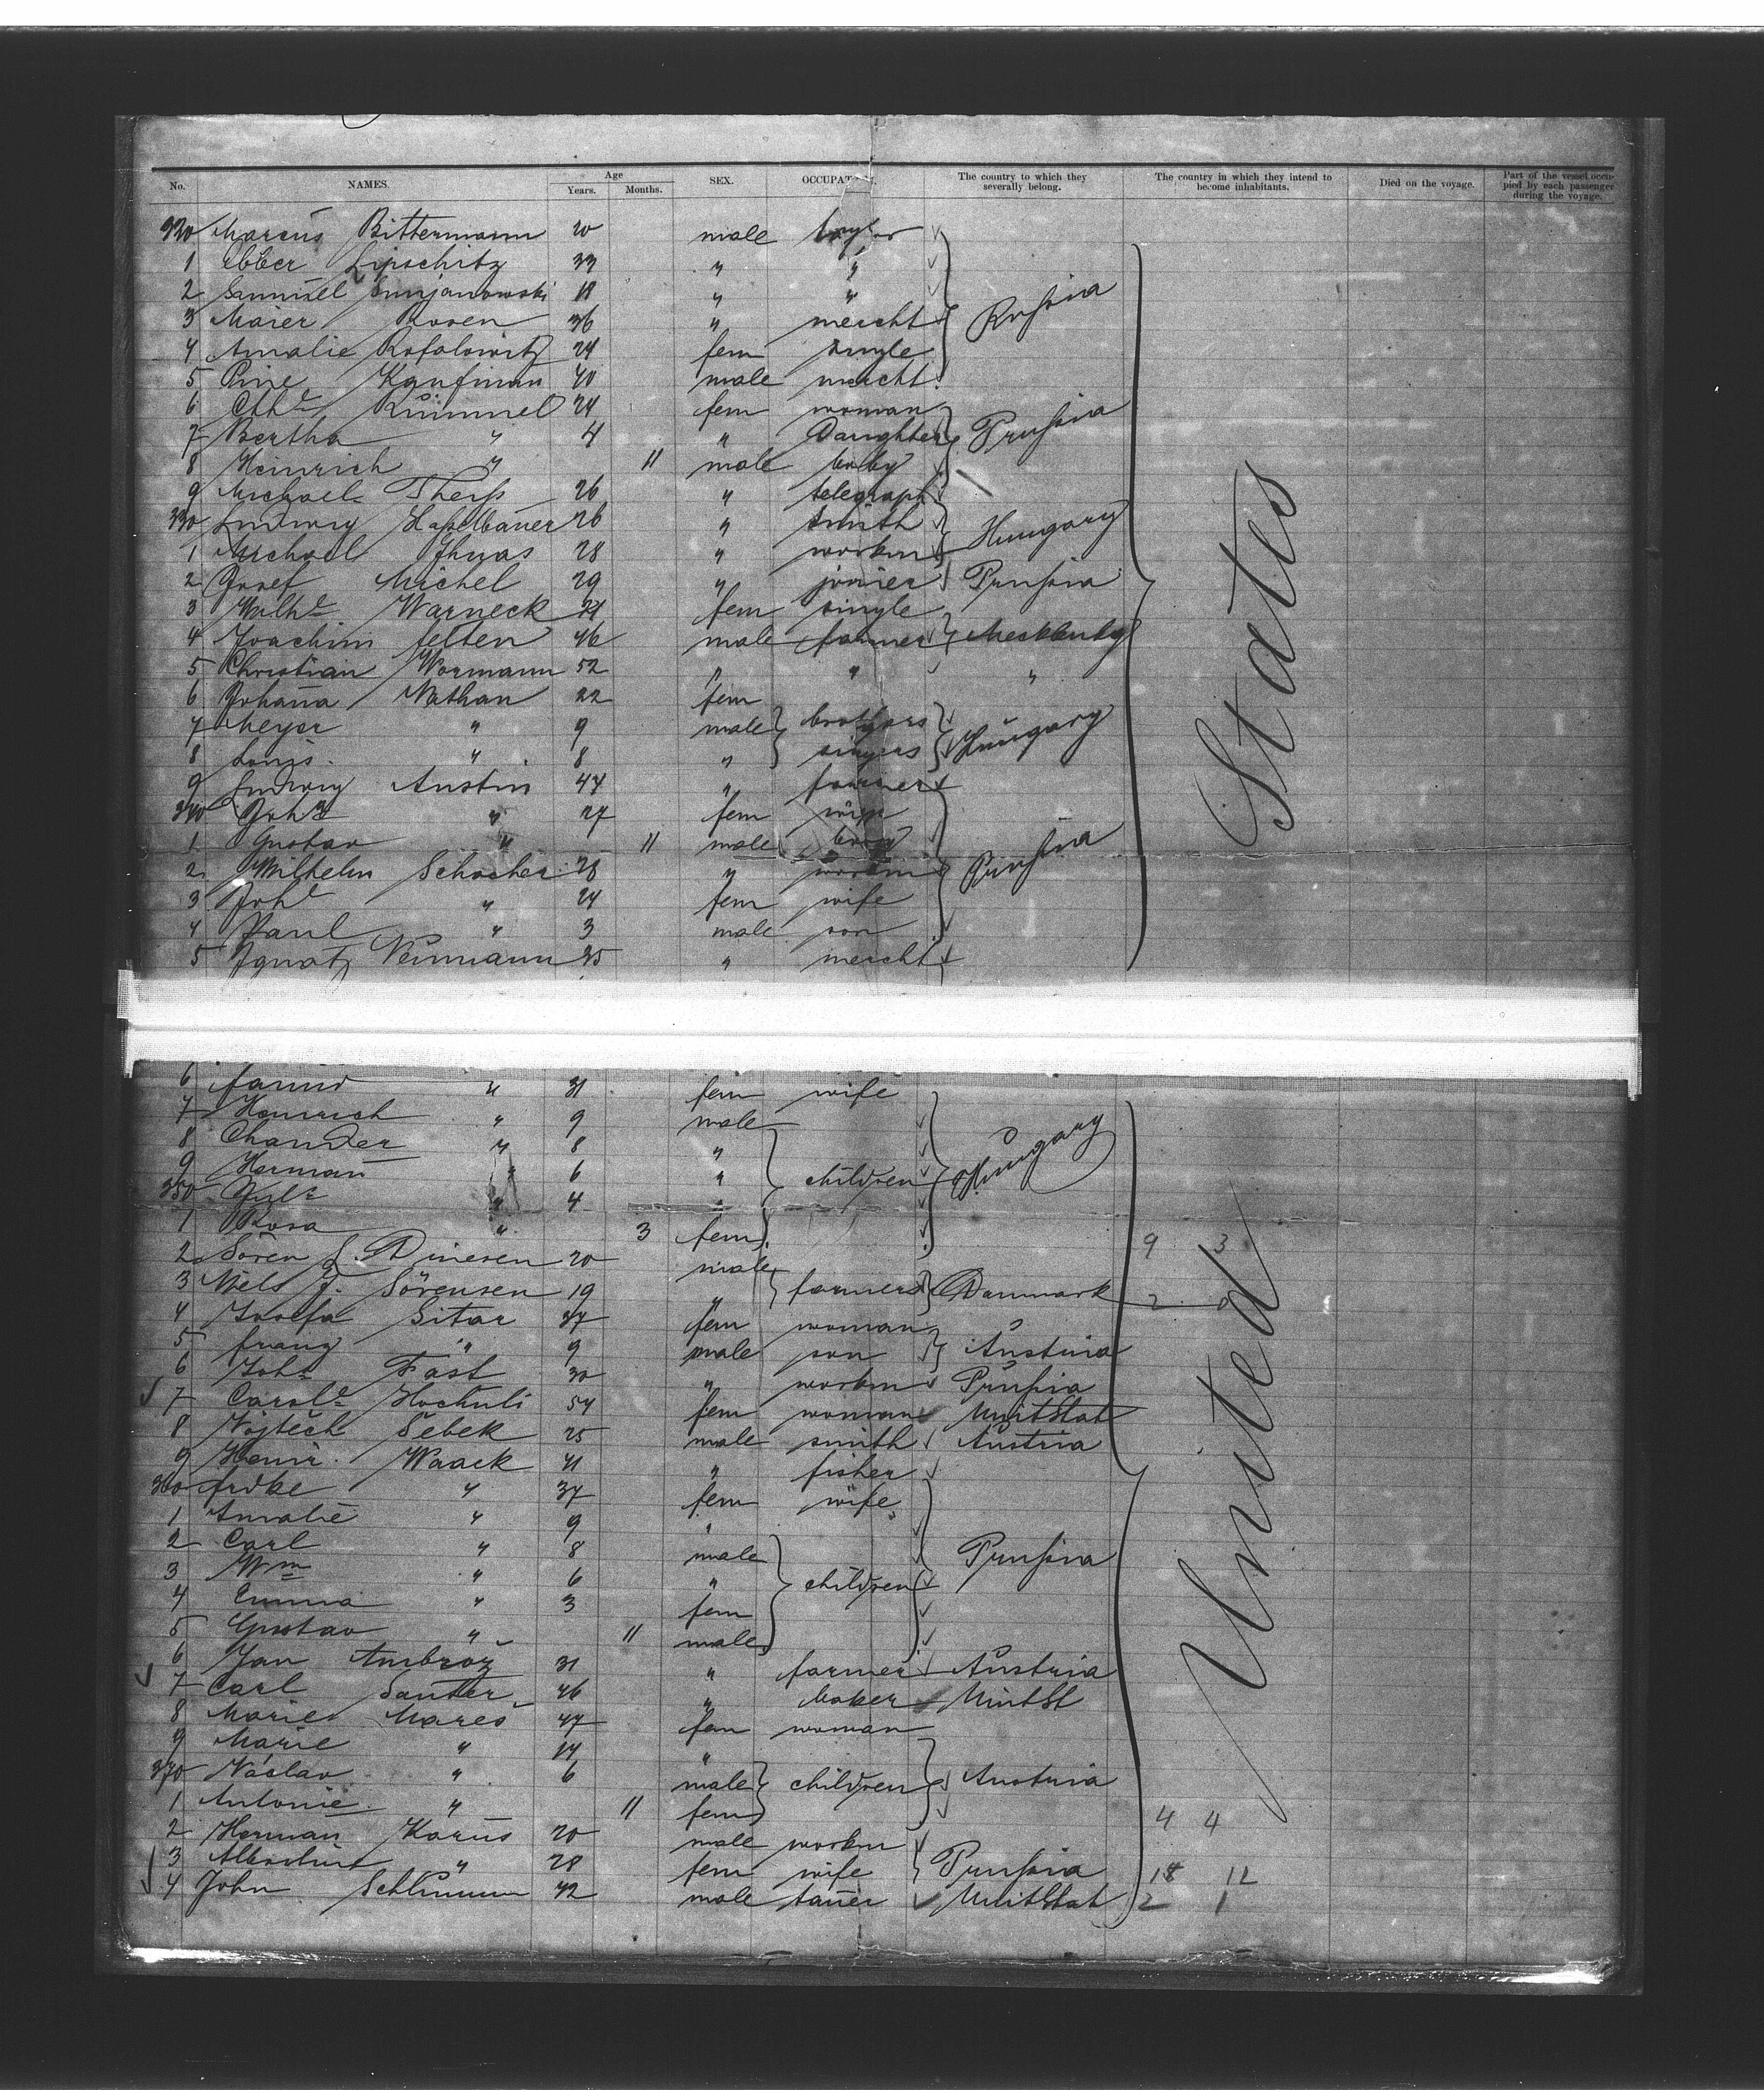 No. NAMES. Age Years. Months. SEX. OCCUPATION. The country to which they severally belong. The country in which they intend to become inhabitants. Died on the voyage. Part of the vessel occupied by each passenger during the voyage.
320 Marcus Bittermann 20 male taylor
1 Ebber Lipschitz 33 " "
2 Samuel 18 " "
3 Maier Rosen 36 " mercht Russia
4 Amalie Rofalowitz 24 fem single
5 Pine Kaufman 40 male mercht
6 Cthe Kümmel 24 fem woman
7 Bertha " 4 " Daughter Prussia
8 Heinrich " 11 male baby
9 Michael Theiss 26 " telegraph
330 Ludwig Haselbauer 26 " smith Hungary
1 Michael 28 " workm
2 Josef Michel 29 " joinier Prussia
3 Wilhe Warneck 21 fem single
4 Joachim Felten 46 male farmer Mecklenbg
5 Christian Wormann 52 " " "
6 Johana Nathan 22 fem
7 Meyer " 9 male brothers
8 Louis " 8 " singers Hungary
9 Ludwig Austin 44 " farmer
340 Joha " 27 fem wife
1 Gustav " 11 male baby
2 Wilhelm Schocher 28 " workm Prussia
3 Johe " 24 fem wife
4 Paul " 3 male son
5 Ignatz Neumann 35 " mercht
States
6 " 31 fem wife
7 Heinrich " 9 male
8 " 8 "
9 Herman " 6 " children Hungary
350 Jule " 4 "
1 Rosa " 3 fem
9 3
2 Sören J. Dinesen 20 male
3 Niels J. Sörensen 19 " farmers Danmark 2 0
4 Josefa Sitar 47 fem woman
5 Franz " 9 male son Austria
6 Johs Fast 30 " workm Prussia
7 Carole Hochuli 54 fem woman UnitStat
8 Vojtěch Šebek 25 male smith Austria
9 Heinr. Waack 41 " fisher
360 Frdke " 37 fem wife
1 Amalie " 9 "
2 Carl " 8 male Prussia
3 Wm " 6 " children
4 Emma " 3 fem
5 Gustav " 11 male
6 Jan Ambrož 31 " farmer Austria
7 Carl Sauter 46 " baker UnitSt
8 Marie Mareš 47 fem woman
9 Marie " 14 "
370 Václav " 6 male children Austria
1 Antonie " 11 fem
4 4
2 Herman Karus 20 male workm
3 Albertine " 28 fem wife Prussia 18 12
4 John Schlumm 42 male taner UnitStat 2 1
United